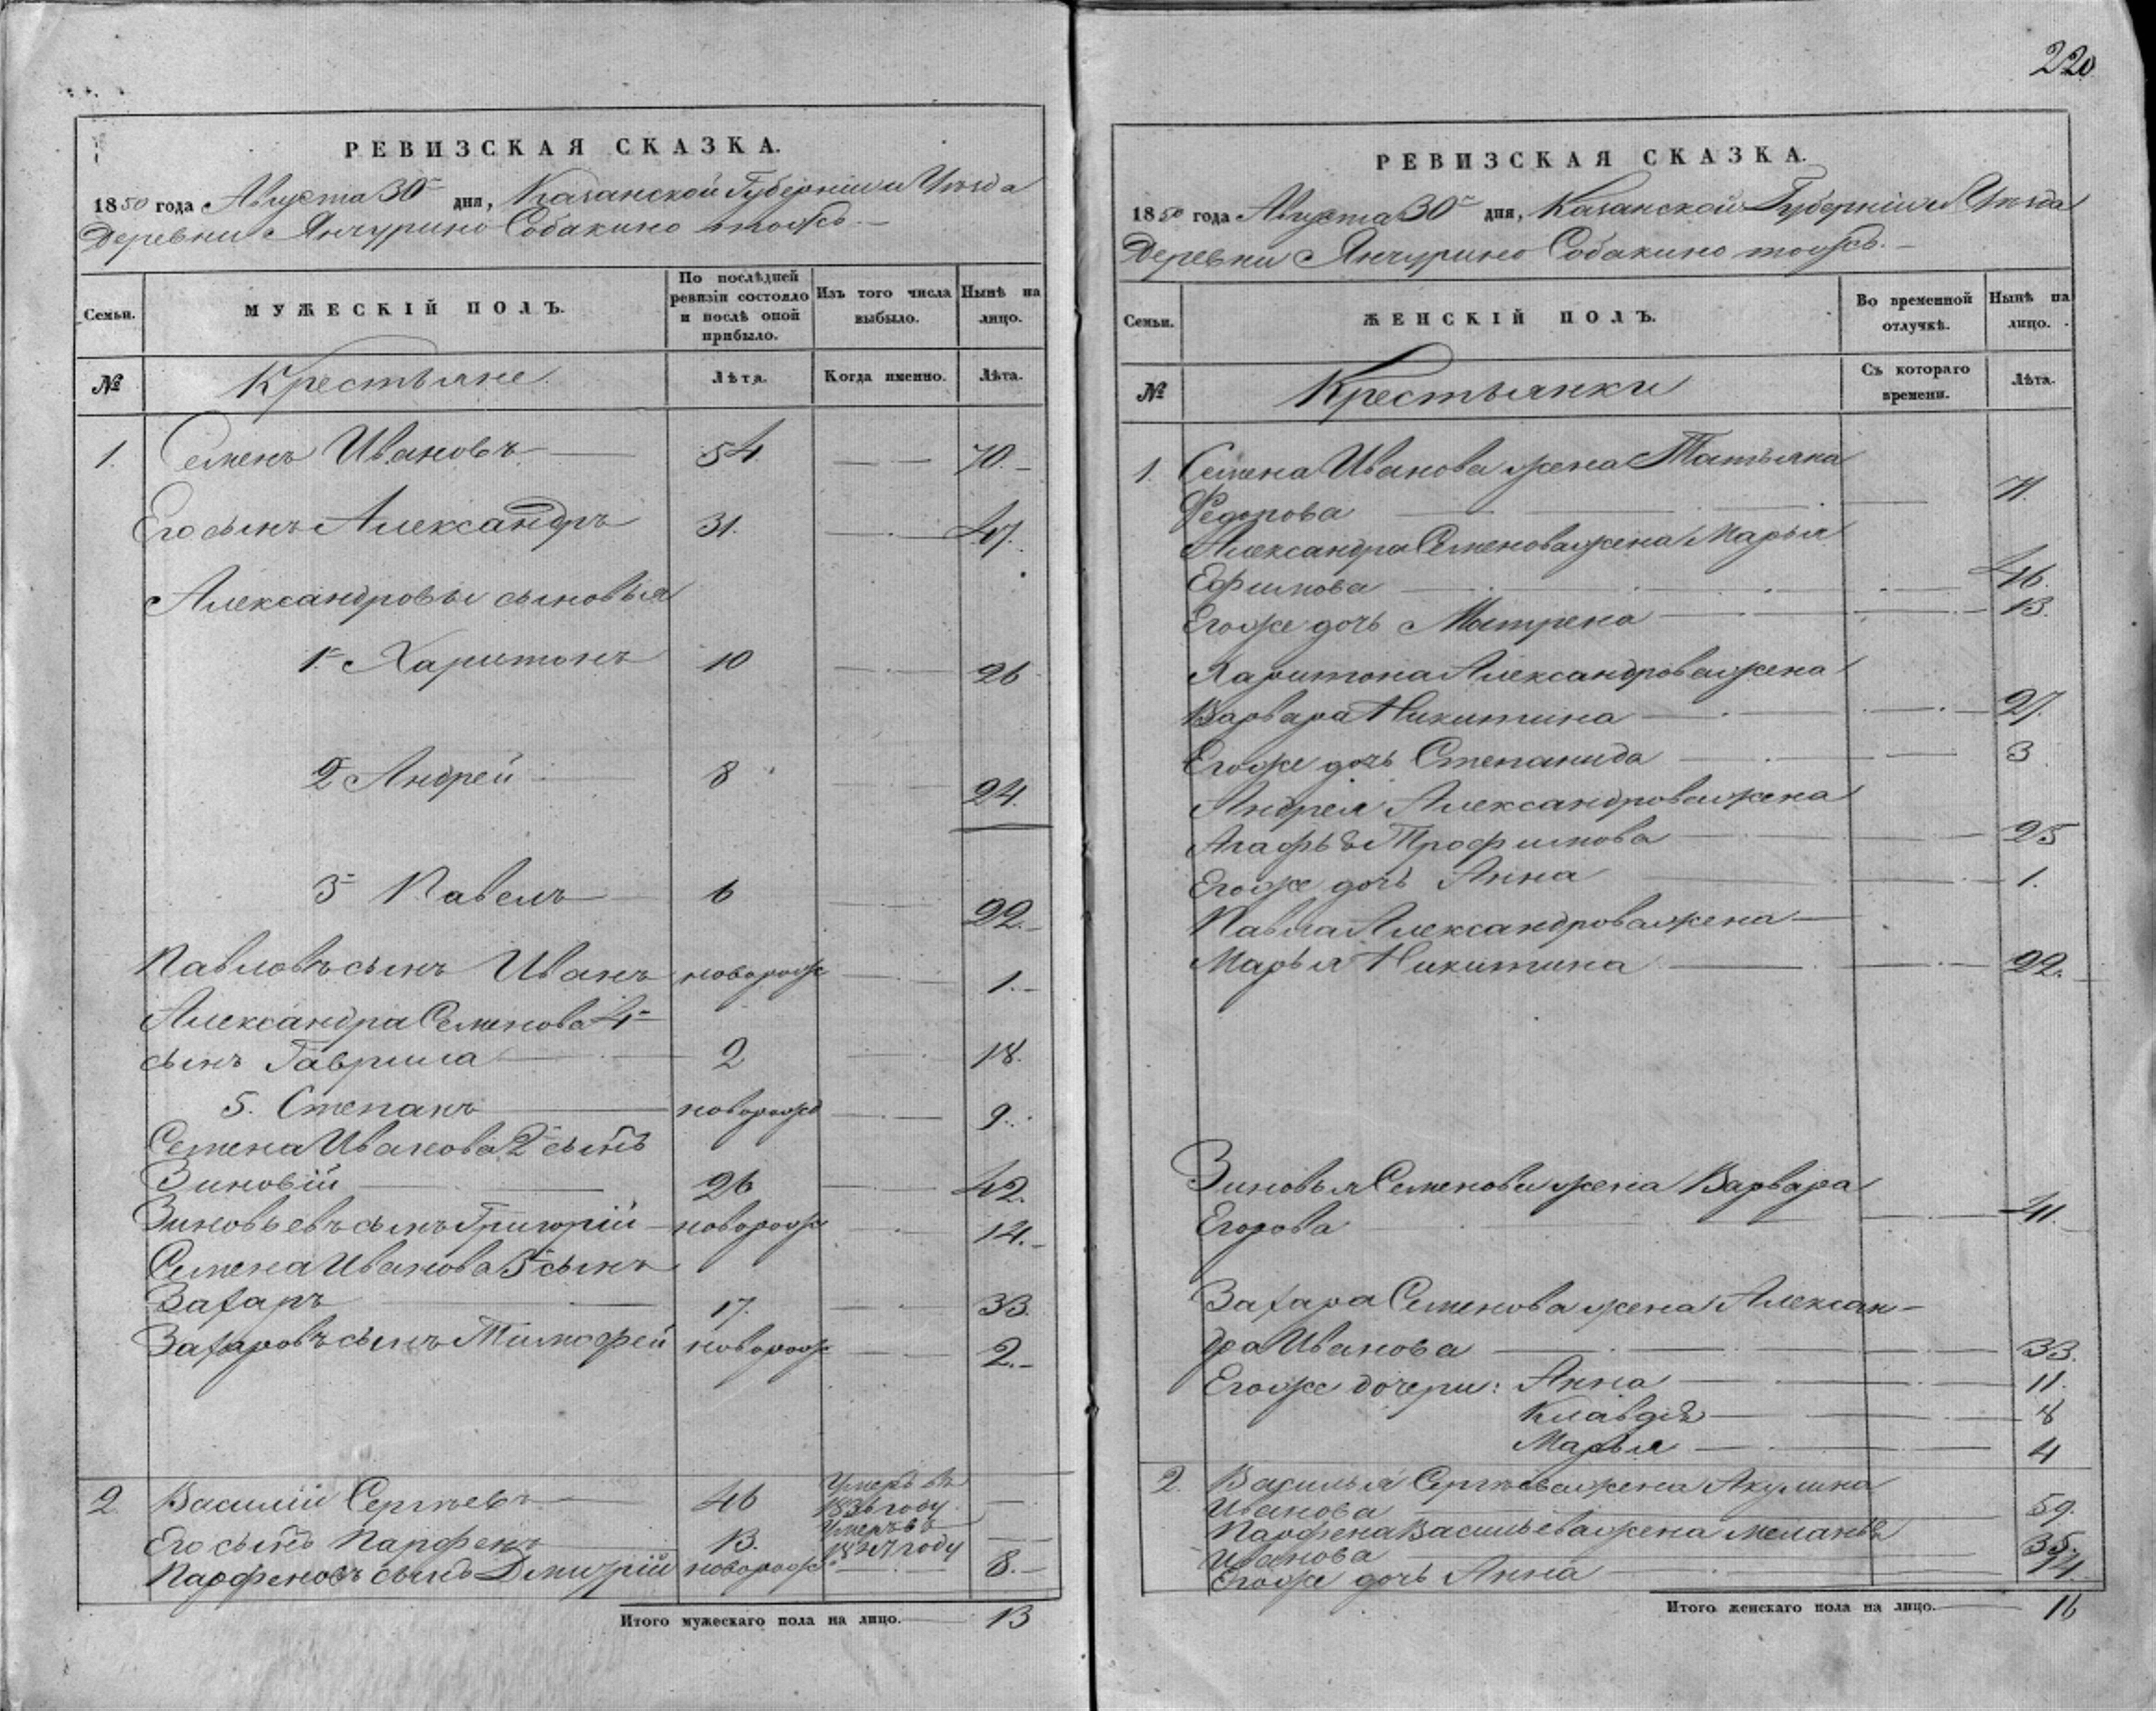 220
РЕВИЗСКАЯ СКАЗКА.
1850 года Августа 30 дня, Казанской Губерніи и Уѣзда
Деревни Янчурино Собакино тожъ.
Семьи.
МУЖЕСКІЙ ПОЛЪ.
По послѣдней ревизіи состояло и послѣ оной прибыло.
Изъ того числа выбыло.
Нынѣ на лицо.
№ Крестьяне Лѣта. Когда именно. Лѣта.
1. Семенъ Ивановъ 54 70.
Его сынъ Александръ 31. 47.
Александровы сыновья
1. Харитонъ 10 26
2 Андрей 8 24.
3 Павелъ 6 22.
Павловъ сынъ Иванъ новорож 1.
Александра Семенова 4
сынъ Гаврила 2 18.
5. Степанъ новорожд 9.
Семена Иванова 2 сынъ
Зиновій 26 42.
Зиновьевъ сынъ Григорій новорож 14.
Семена Иванова 3 сынъ
Захаръ 17. 33.
Захаровъ сынъ Тимофей новорож 2.
2 Василій Сергѣевъ 46 Умеръ въ 1836 году
Его сынъ Парфенъ Умеръ въ году
Парфеновъ сынъ Дмитрій новорож 8.
Итого мужескаго пола на лицо. 13
РЕВИЗСКАЯ СКАЗКА.
1850 года Августа 30 дня, Казанской Губерніи и Уѣзда
Деревни Янчурино Собакино тожъ.
Семьи.
ЖЕНСКІЙ ПОЛЪ.
Во временной отлучкѣ.
Нынѣ на лицо.
№ Крестьянки Съ котораго времени. Лѣта.
1. Семена Иванова жена Татьяна
Федорова 71.
Александра Семенова жена Марья
Ефимова 46.
Егоже дочь Матрена 13.
Харитона Александрова жена
Варвара Никитина 27.
Егоже дочь Степанида 3
Андрея Александрова жена
Агафья Трофимова 25
Егоже дочь Анна 1.
Павла Александрова жена
Марья Никитина 22.
Зиновья Семенова жена Варвара
Егорова 41.
Захара Семенова жена Алексан-
дра Иванова 33.
Егоже дочери: Анна 11.
Клавдія 8
Марья 4
2. Василья Сергѣева жена Акулина
Иванова 59.
Парфена Васильева жена Меланья
Иванова 35.
Егоже дочь Анна
Итого женскаго пола на лицо. 16